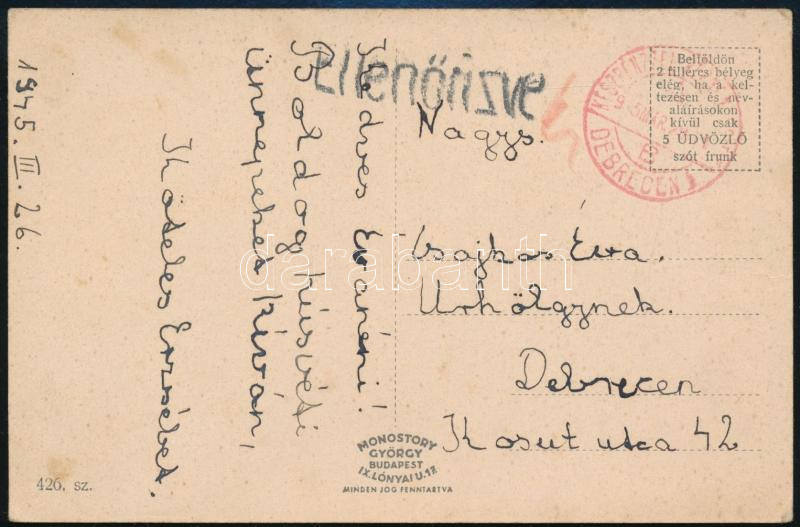 1945. III. 26.
Kedves Évanéni!
Boldog húsvéti
ünnepeket kíván,
Köteles Erzsébet.
Ellenőrizve
Belföldön
2 filléres bélyeg
elég, ha a kel-
tezésen és név-
aláírásokon
kívül csak
5 ÜDVÖZLŐ
szót írunk
DEBRECEN 1
Nagys.
Csajkos Éva.
Urhölgynek.
Debrecen
Kosut utca 42
darabanth
MONOSTORY
GYÖRGY
BUDAPEST
IX. LÓNYAI U. 17.
MINDEN JOG FENNTARTVA
426. sz.